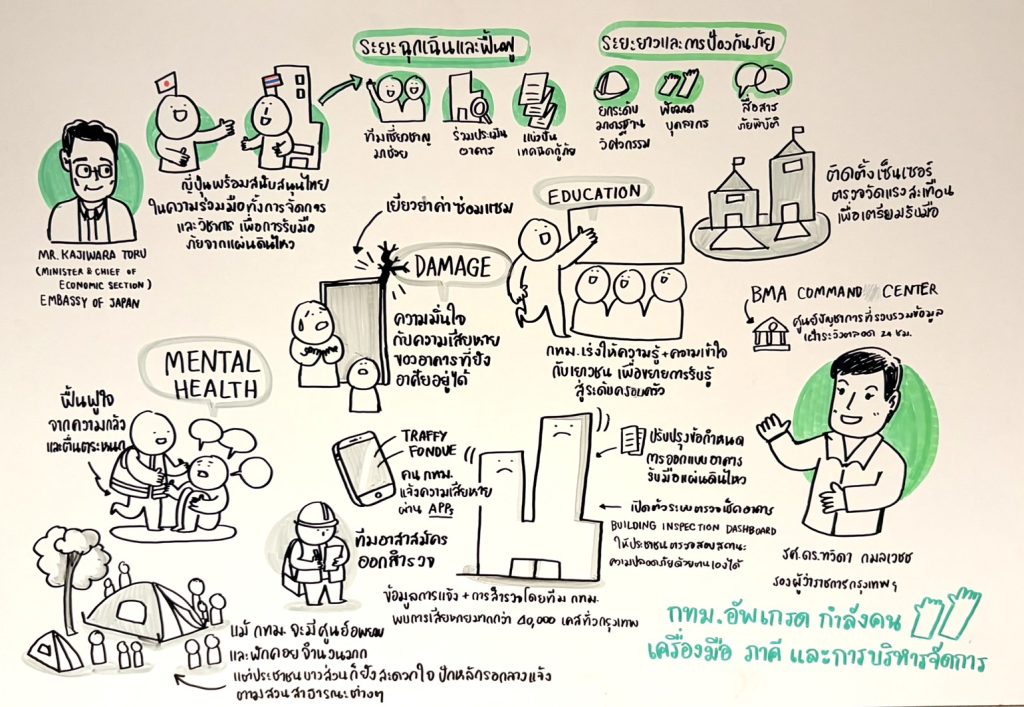 ระยะฉุกเฉินและฟื้นฟู
ทีมเชี่ยวชาญ
มาช่วย
ร่วมประเมิน
อาคาร
แบ่งปัน
เทคนิคกู้ภัย
ระยะยาวและการป้องกันภัย
ยกระดับ
มาตรฐาน
วิศวกรรม
พัฒนา
บุคลากร
สื่อสาร
ภัยพิบัติ
MR. KAJIWARA TORU
(MINISTER & CHIEF OF
ECONOMIC SECTION)
EMBASSY OF JAPAN
ญี่ปุ่นพร้อมสนับสนุนไทย
ในความร่วมมือทั้งการจัดการ
และวิชาการ เพื่อการรับมือ
ภัยจากแผ่นดินไหว
เยียวยาค่าซ่อมแซม
DAMAGE
ความมั่นใจ
กับความเสียหาย
ของอาคารที่ยัง
อาศัยอยู่ได้
EDUCATION
กทม. เร่งให้ความรู้ + ความเข้าใจ
กับเยาวชน เพื่อขยายการรับรู้
สู่ระดับครอบครัว
ติดตั้งเซ็นเซอร์
ตรวจวัดแรงสะเทือน
เพื่อเตรียมรับมือ
BMA COMMAND CENTER
ศูนย์บัญชาการที่รวบรวมข้อมูล
เฝ้าระวังตลอด 24 ชม.
MENTAL
HEALTH
ฟื้นฟูใจ
จากความกลัว
และตื่นตระหนก
TRAFFY
FONDUE
คน กทม.
แจ้งความเสียหาย
ผ่าน APP
ทีมอาสาสมัคร
ออกสำรวจ
ข้อมูลการแจ้ง + การสำรวจโดยทีม กทม.
พบการเสียหายมากกว่า 20,000 เคสทั่วกรุงเทพ
ปรับปรุงข้อกำหนด
การออกแบบอาคาร
รับมือแผ่นดินไหว
เปิดตัวระบบตรวจเช็คอาคาร
BUILDING INSPECTION DASHBOARD
ให้ประชาชนตรวจสอบสถานะ
ความปลอดภัยด้วยตนเองได้
รศ.ดร.ทวิดา กมลเวชช
รองผู้ว่าราชการกรุงเทพฯ
แม้ กทม. จะมีศูนย์อพยพ
และพักคอยจำนวนมาก
แต่ประชาชนบางส่วนก็ยังสะดวกใจ ปักหลักรอกลางแจ้ง
ตามสวนสาธารณะต่างๆ
กทม. อัพเกรด กำลังคน
เครื่องมือ ภาคี และการบริหารจัดการ